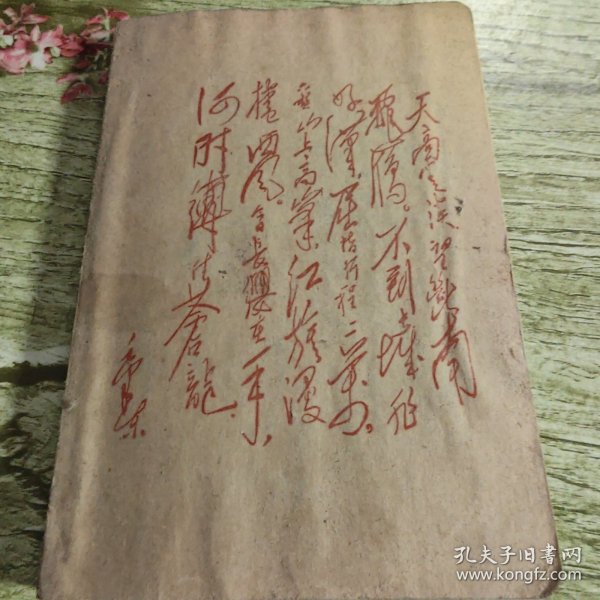 天高云淡望断南
飞鴈。不到长城非
好汉，屈指行程二万。
六盘山上高峯，红旗漫
捲西风。今日长缨在手，
何时缚住苍龙
毛泽东
孔夫子旧书网
www.kongfz.com